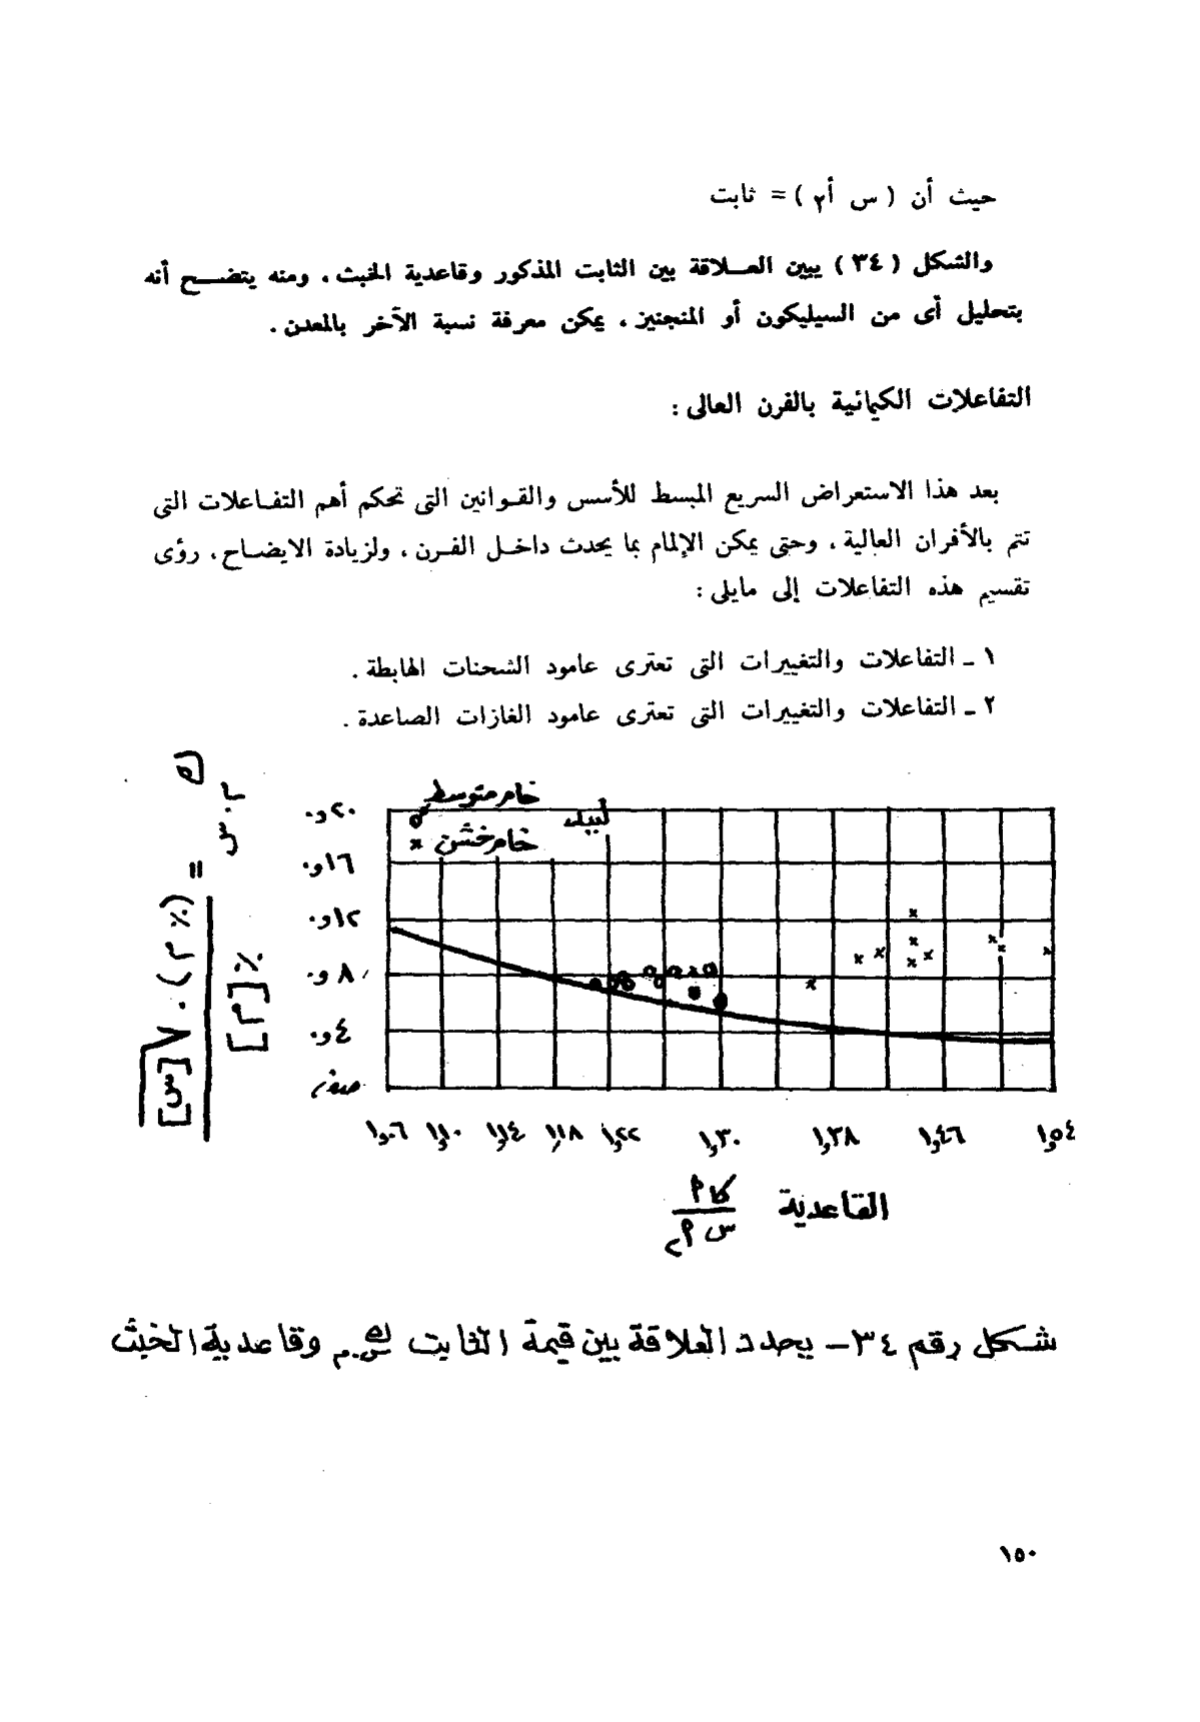 حيث أن ( س أ٢ ) = ثابت
والشكل ( ٣٤ ) يبين العـــلاقة بين الثابت المذكور وقاعدية الخبث ، ومنه يتضـــح أنه
بتحليل أى من السيليكون أو المنجنيز ، يمكن معرفة نسبة الآخر بالمعدن .
التفاعلات الكيمائية بالفرن العالى :
بعد هذا الاستعراض السريع المبسط للأسس والقـوانين التى تحكم أهم التفـاعلات التى
تتم بالأفران العالية ، وحتى يمكن الإلمام بما يحدث داخـل الفـرن ، ولزيادة الايضـاح ، رؤى
تقسيم هذه التفاعلات إلى مايلى :
١ ـ التفاعلات والتغييرات التى تعترى عامود الشحنات الهابطة .
٢ ـ التفاعلات والتغييرات التى تعترى عامود الغازات الصاعدة .
ك س.م = (٪ م) . √[س] / ٪ [م]
خام متوسط
خام خشن ×
٢٠و٠
١٦و٠
١٢و٠
٨و٠
٤و٠
صفر
١٫٠٦ ١٫١٠ ١٫١٤ ١٫١٨ ١٫٢٢ ١٫٣٠ ١٫٣٨ ١٫٤٦ ١٫٥٤
القاعدية كا أ / س أ٢
شكل رقم ٣٤ – يحدد العلاقة بين قيمة الثابت ك س.م وقاعدية الخبث
١٥٠